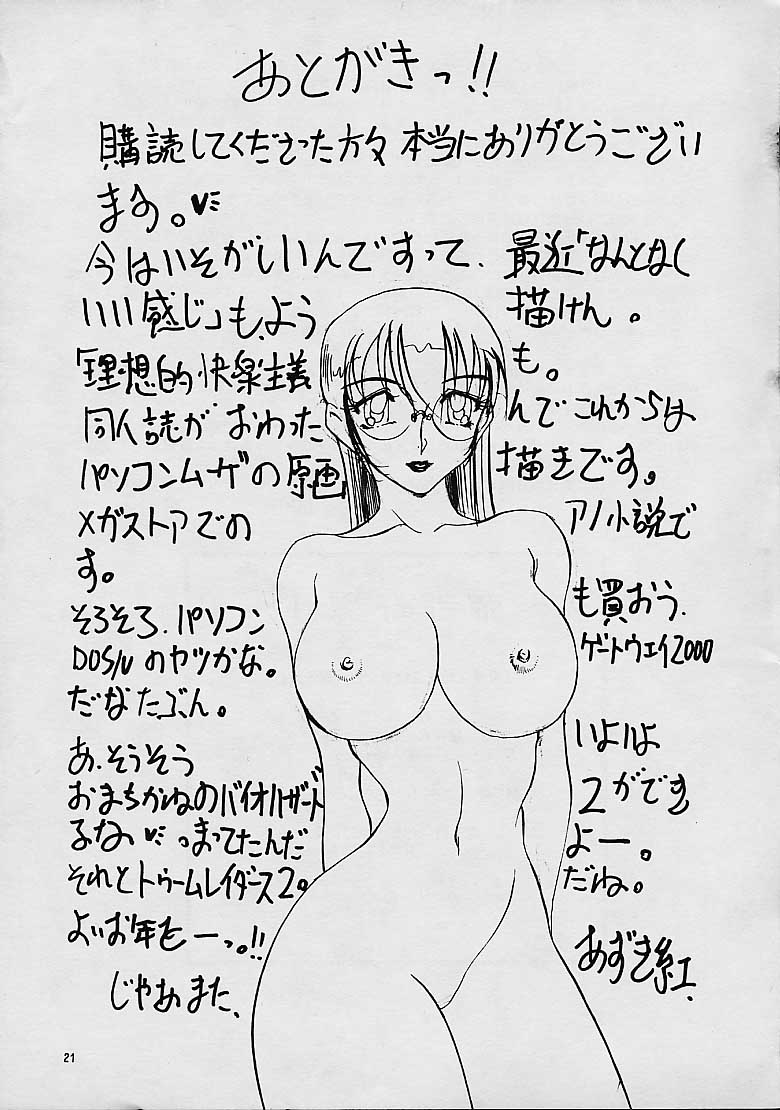 あとがきっ!!
購読してくださった方々 本当にありがとうござい
ます。
今はいそがしいんですって、最近「なんとなく
いい感じ」も、よう描けん。
「理想的快楽主義も。
同人読がおわったんでこれからは
パソコンムサの原画描きです。
メガストアでのアノ小説で
す。
そろそろ、パソコンも買おう、
DOS/Vのヤツかな。ゲートウェイ2000
だなたぶん。
あ、そうそう いよいよ
おまちかねのバイオハザード2ができ
るな っまってたんだよー。
それとトゥームレイダース2。だね。
よいお年をーっ。!!
じゃあまた、
あずき紅、
21